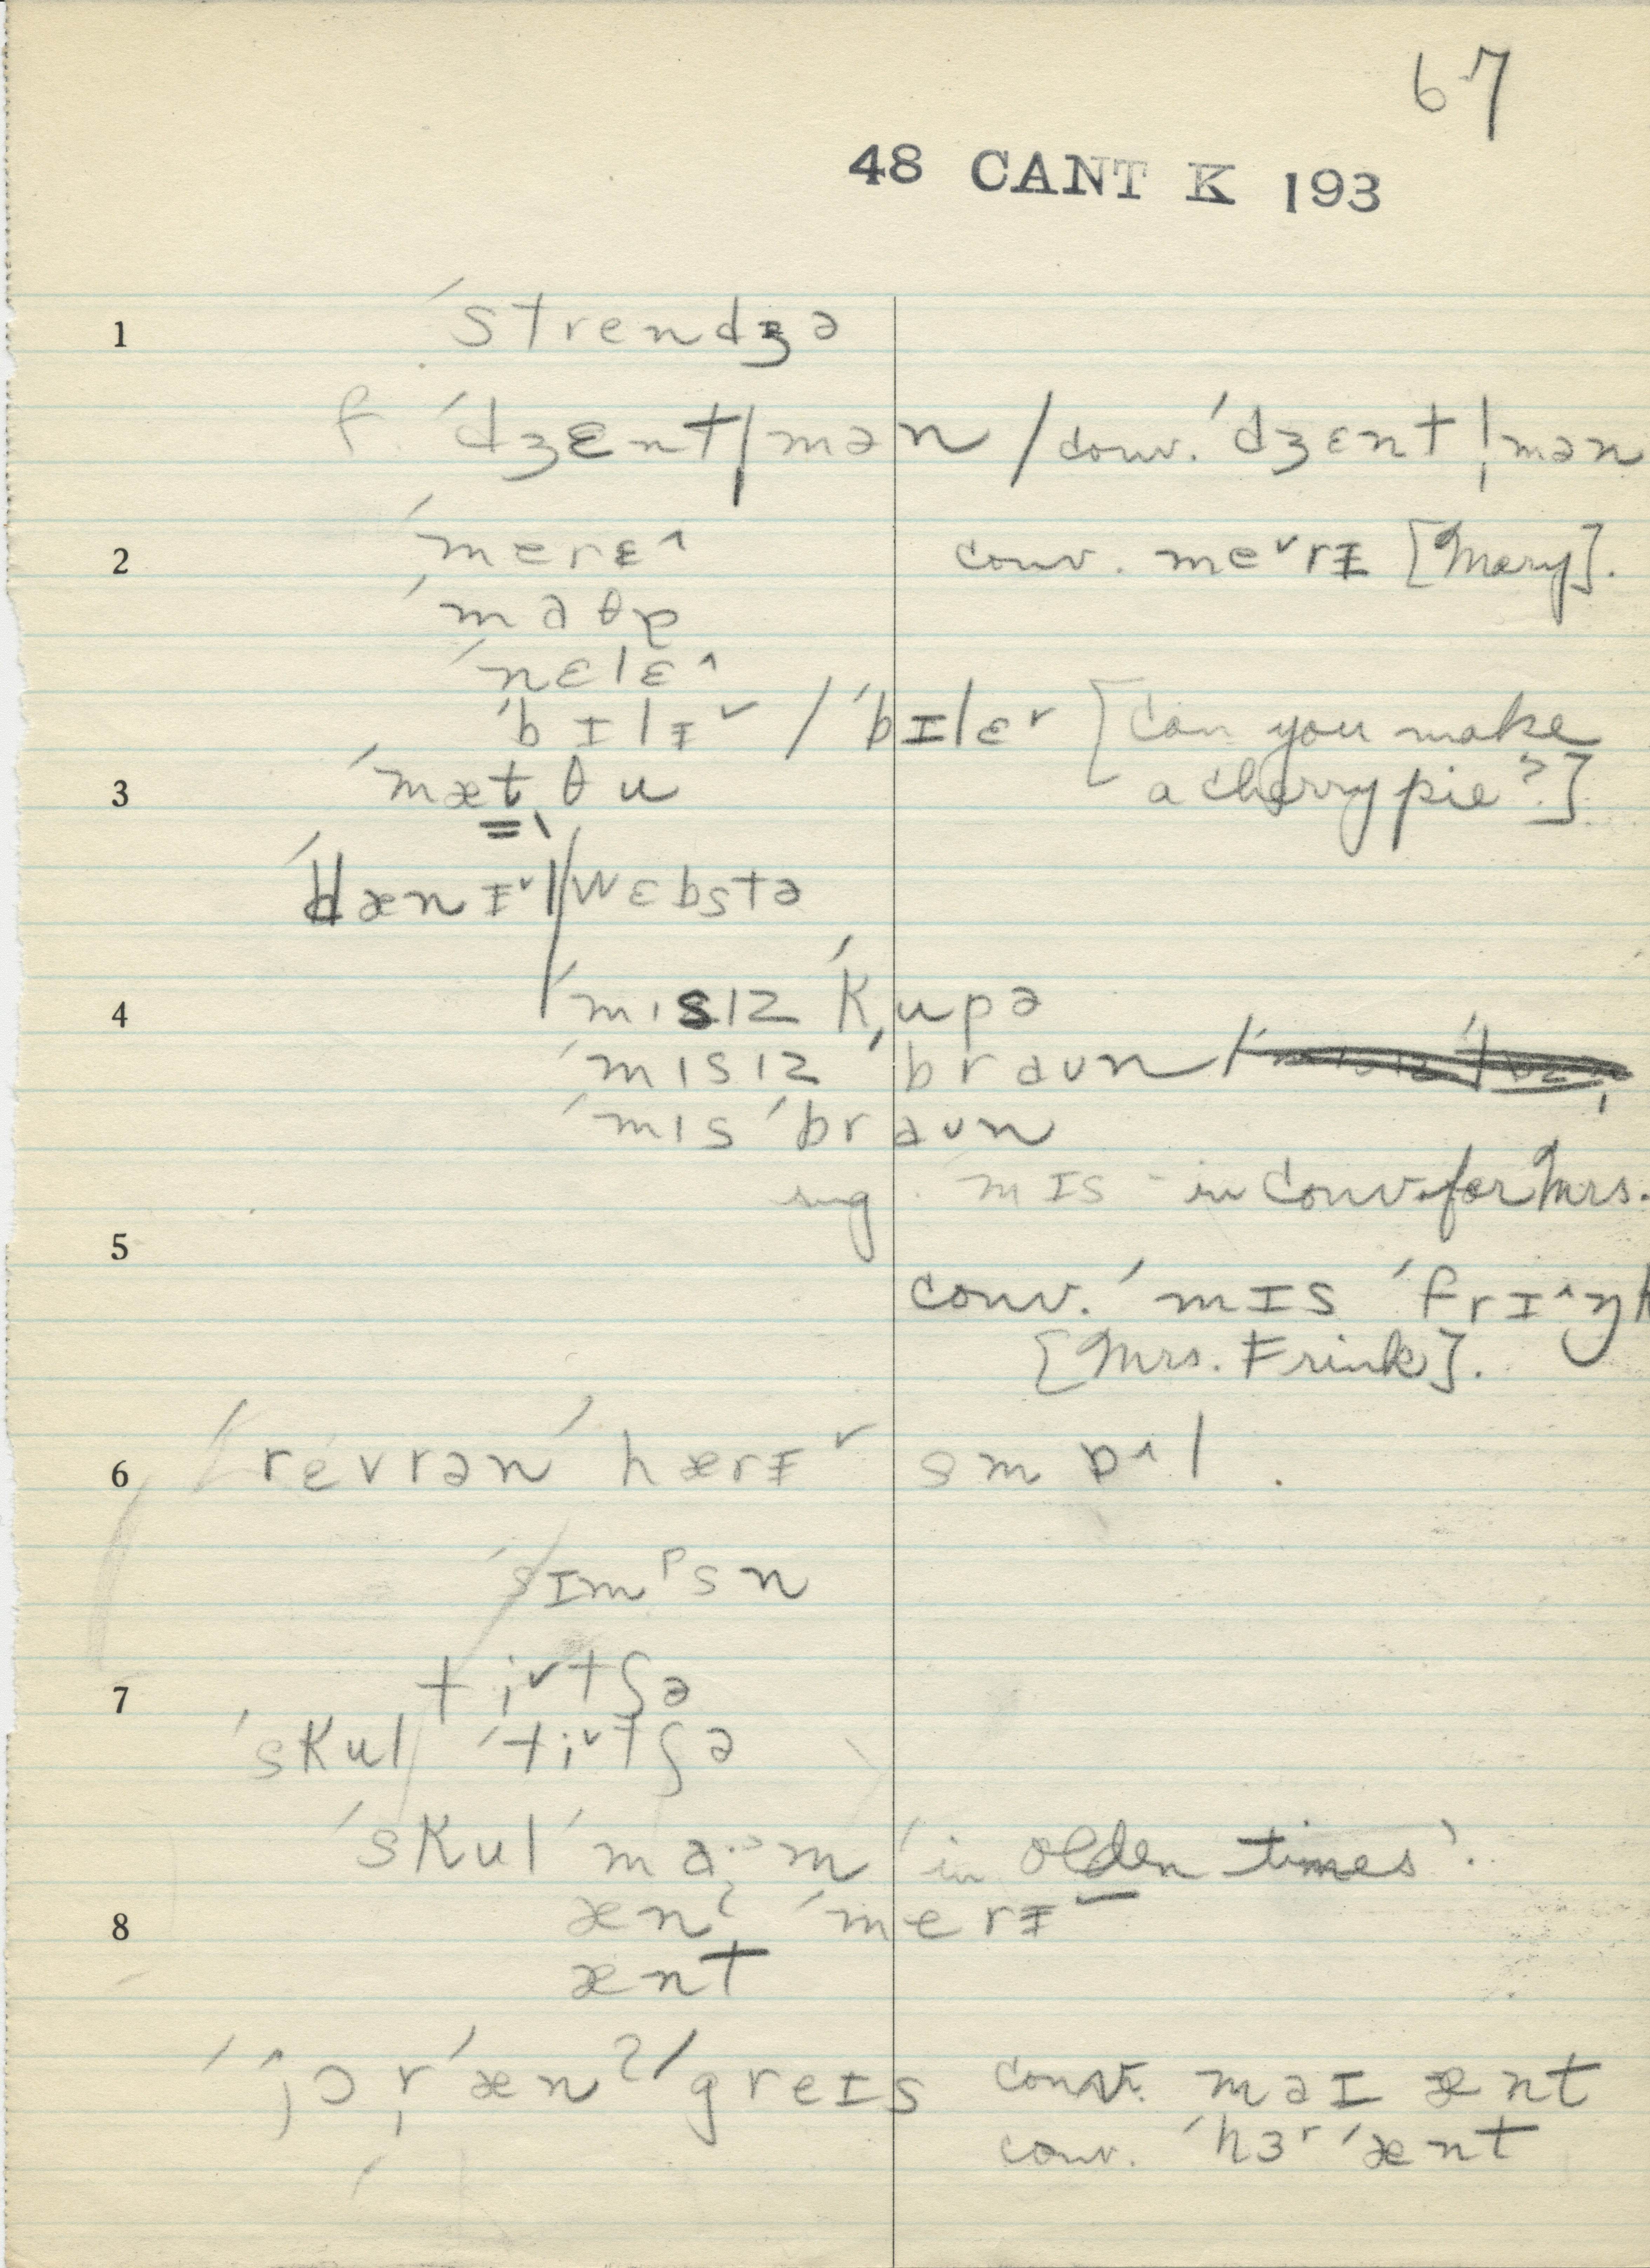 67
48 CANT K 193
1 ˈstrendʒə
f. ˈdʒɛntl̩mən / conv. ˈdʒɛntl̩mən
2 ˈmerɛ^ conv. meˇrɪ [Mary].
ˈmaθɒ
ˈnɛlɛ^
ˈbɪlɪˇ / ˈbɪlɛˇ [Can you make
3 ˈmætˌθu a cherry pie?]
ˈdænɪˇl ˈwɛbstə
4 ˈmɪsɪz ˈkupə
ˈmɪsɪz ˈbraun
ˈmɪs ˈbraun
sug. mɪs - in conv. for Mrs.
5
conv. ˈmɪs ˈfrɪ^ŋk
[Mrs. Frink].
6 ˈrevrən ˈhærɪˇ smɒ^l.
ˈsɪmᵖsn
7 tiˇtʃə
ˈskul ˈtiˇtʃə
ˈskul ˈmaˑᵊm 'in olden times'.
8 ænˀ ˈmerɪ
ænt
ˈjɔr̩ ˈænˀ ˈgreɪs conv. maɪ ænt
conv. ˈhɜʳ ˈænt